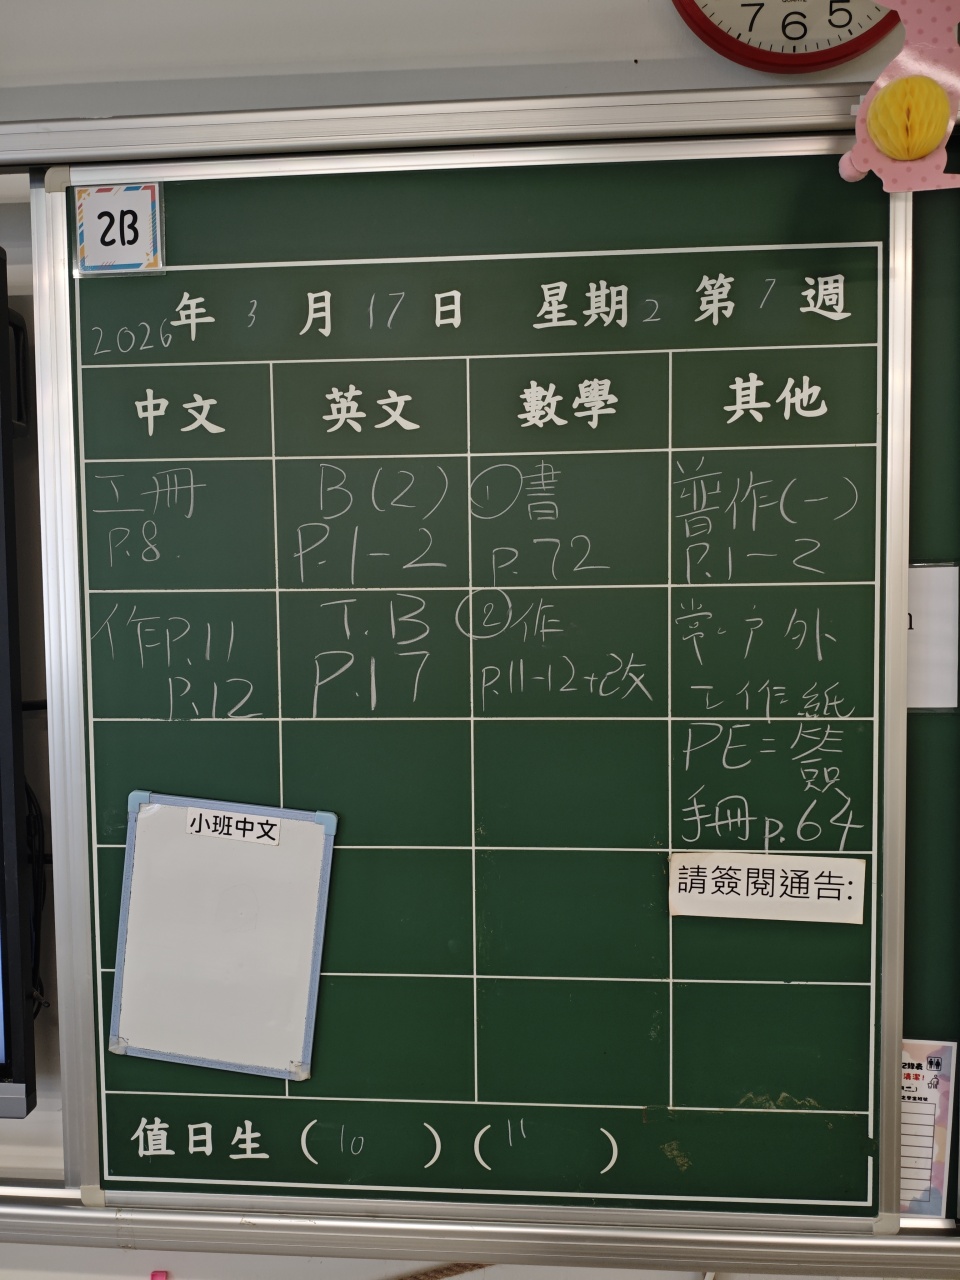 7 6 5
2B
2026年 3 月 17 日 星期 2 第 7 週
中文 英文 數學 其他
工冊
P.8.
B(2)
P.1-2
①書
p.72
普作(一)
P.1-2
作P.11
P.12
T.B
P.17
②作
p.11-12+改
常:戶外
工作紙
PE=簽
手冊p.64
小班中文
請簽閱通告:
值日生 ( 10 ) ( 11 )